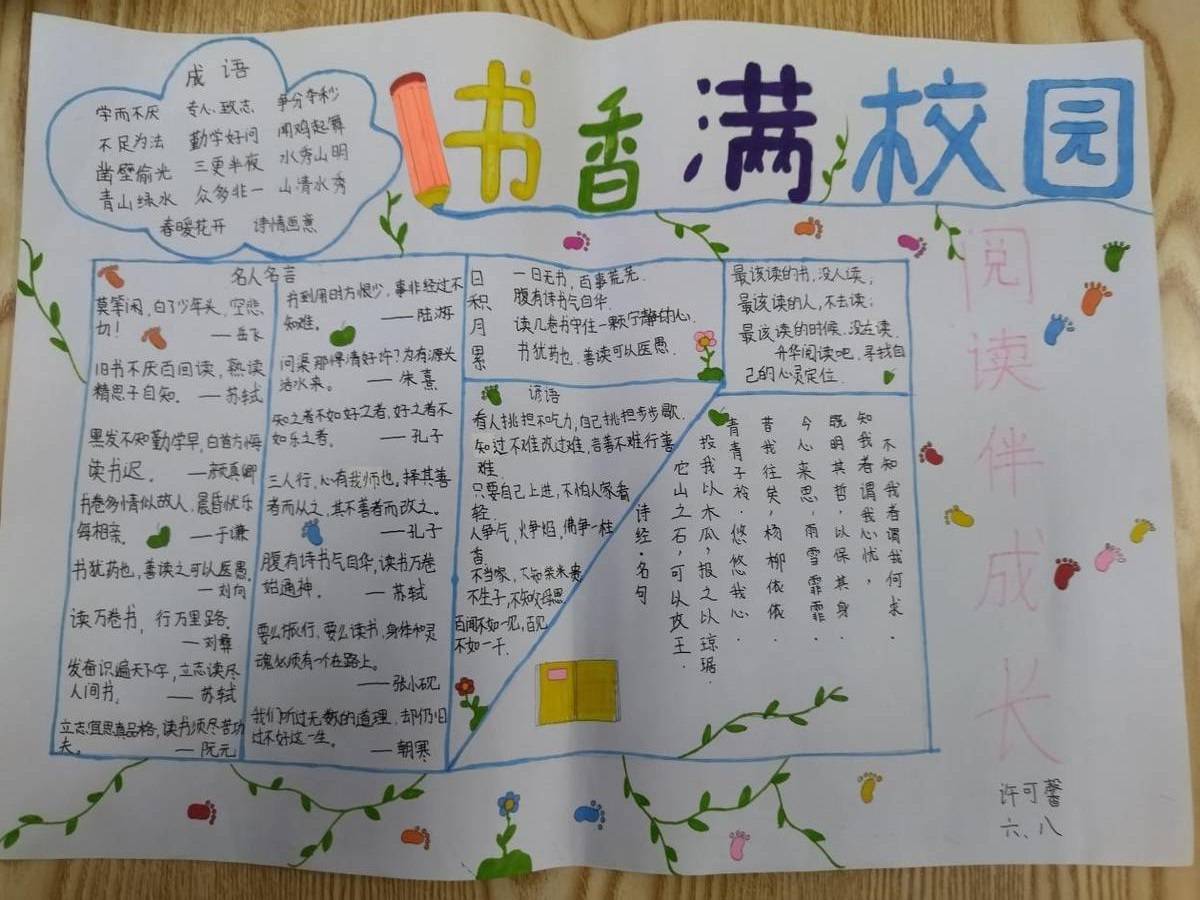 书香满校园
成语
学而不厌 专心致志 争分夺秒
不足为法 勤学好问 闻鸡起舞
凿壁偷光 三更半夜 水秀山明
青山绿水 众多非一 山清水秀
春暖花开 诗情画意
名人名言
莫等闲,白了少年头,空悲
切!
——岳飞
旧书不厌百回读,熟读
精思子自知。——苏轼
黑发不知勤学早,白首方悔
读书迟。——颜真卿
书卷多情似故人,晨昏忧乐
每相亲。——于谦
书犹药也,善读之可以医愚。
——刘向
读万卷书,行万里路。
——刘彝
发奋识遍天下字,立志读尽
人间书。——苏轼
立志宜思真品格,读书须尽苦功
夫。——阮元
书到用时方恨少,事非经过不
知难。——陆游
问渠那得清如许?为有源头
活水来。——朱熹
知之者不如好之者,好之者不
如乐之者。——孔子
三人行,必有我师也。择其善
者而从之,其不善者而改之。
——孔子
腹有诗书气自华,读书万卷
始通神。——苏轼
要么旅行,要么读书,身体和灵
魂必须有一个在路上。
——张小砚
我们听过无数的道理,却仍旧
过不好这一生。
——韩寒
日积月累
一日无书,百事荒芜.
腹有读书气自华.
读几卷书守住一颗宁静的心.
书犹药也,善读可以医愚.
最该读的书,没人读;
最该读的人,不去读;
最该读的时候,没在读.
升华阅读吧,寻找自
己的心灵定位.
谚语
看人挑担不吃力,自己挑担步步歇.
知过不难改过难,言善不难行善
难.
只要自己上进,不怕人家看
轻.
人争气,火争焰,佛争一柱
香
不当家,不知柴米贵
不生子,不知父母恩
百闻不如一见,百见
不如一干.
不知我者谓我何求.
知我者谓我心忧,
既明其哲,以保其身.
今心来思,雨雪霏霏.
昔我往矣,杨柳依依.
青青子衿.悠悠我心.
投我以木瓜,报之以琼琚.
它山之石,可以攻玉.
诗经·名句
阅读伴成长
许可馨
六、八